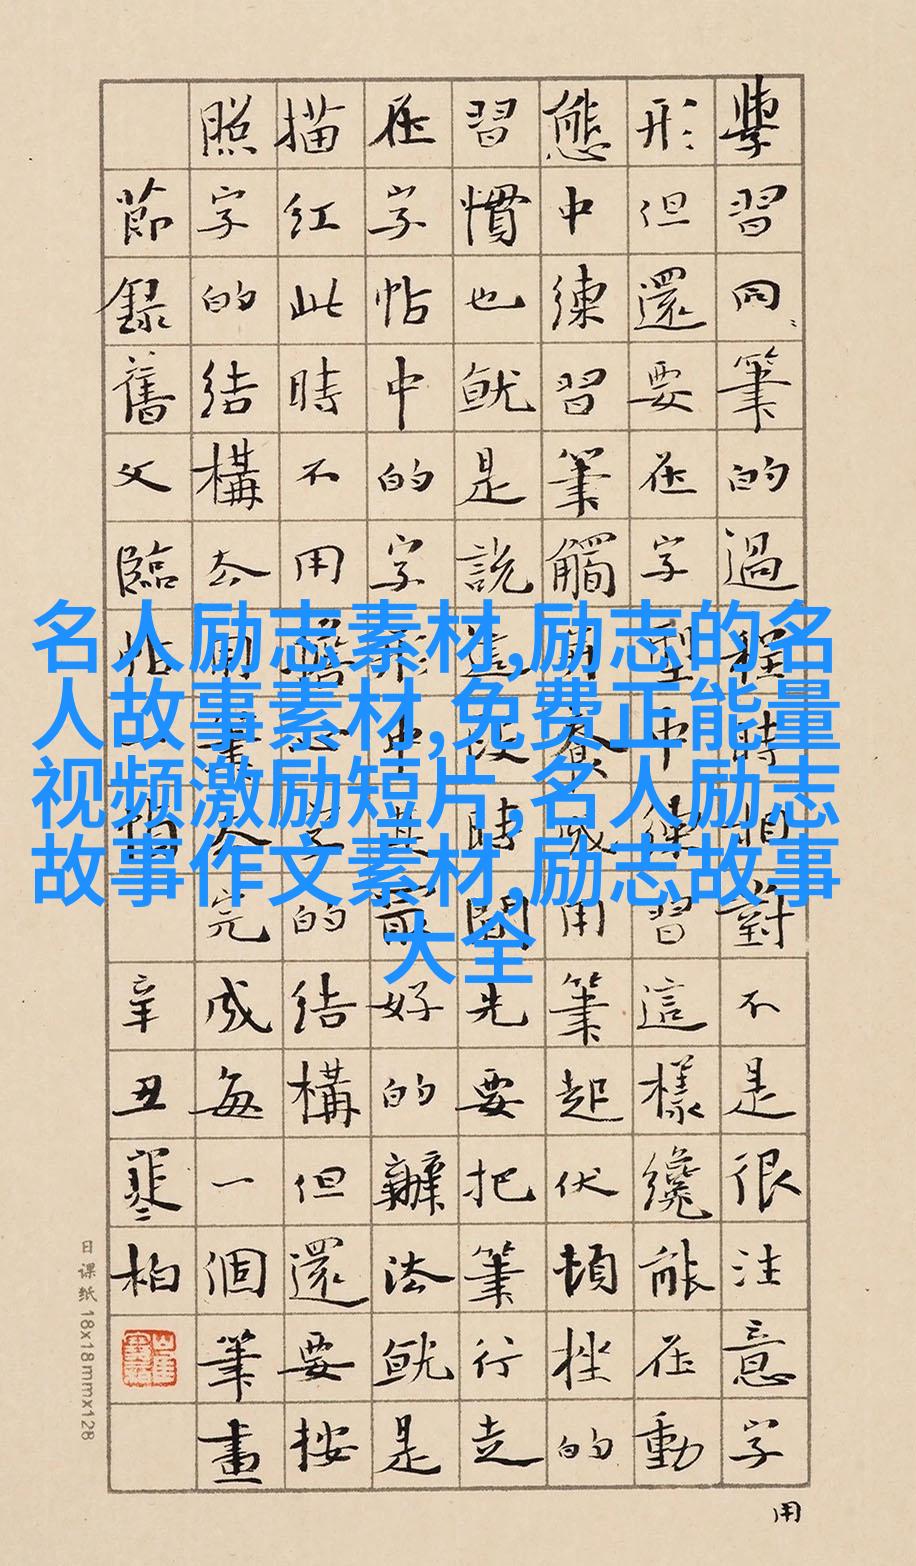 學習同筆的過程時相對不是很注意字
形但還要在字型中練習這樣纔能在動
態中練習筆觸養成用筆起伏頓挫的
習慣也就是說這段時間先要把筆行走
在字帖中的字形中其最好的辦法就是
描紅此時不用擔心字的結構但還要按
照字的結構去用筆去完成每一個筆畫
節錄舊文臨帖一
辛丑寒柏
用
日课纸 18x18mmx128
名人励志素材,励志的名
人故事素材,免费正能量
视频激励短片,名人励志
故事作文素材,励志故事
大全